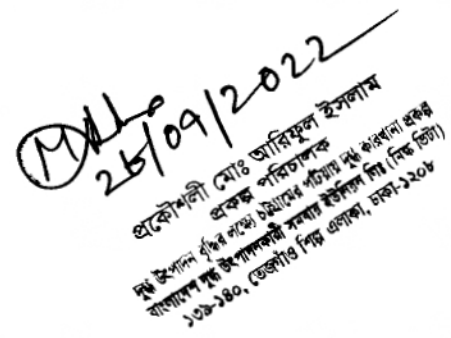 26/04/2022
প্রকৌশলী মোঃ আরিফুল ইসলাম
প্রকল্প পরিচালক
দুগ্ধ উৎপাদন বৃদ্ধির লক্ষ্যে চট্টগ্রামের পটিয়ায় দুগ্ধ কারখানা প্রকল্প
বাংলাদেশ দুগ্ধ উৎপাদনকারী সমবায় ইউনিয়ন লিঃ (মিল্ক ভিটা)
১৩৯-১৪০, তেজগাঁও শিল্প এলাকা, ঢাকা-১২০৮